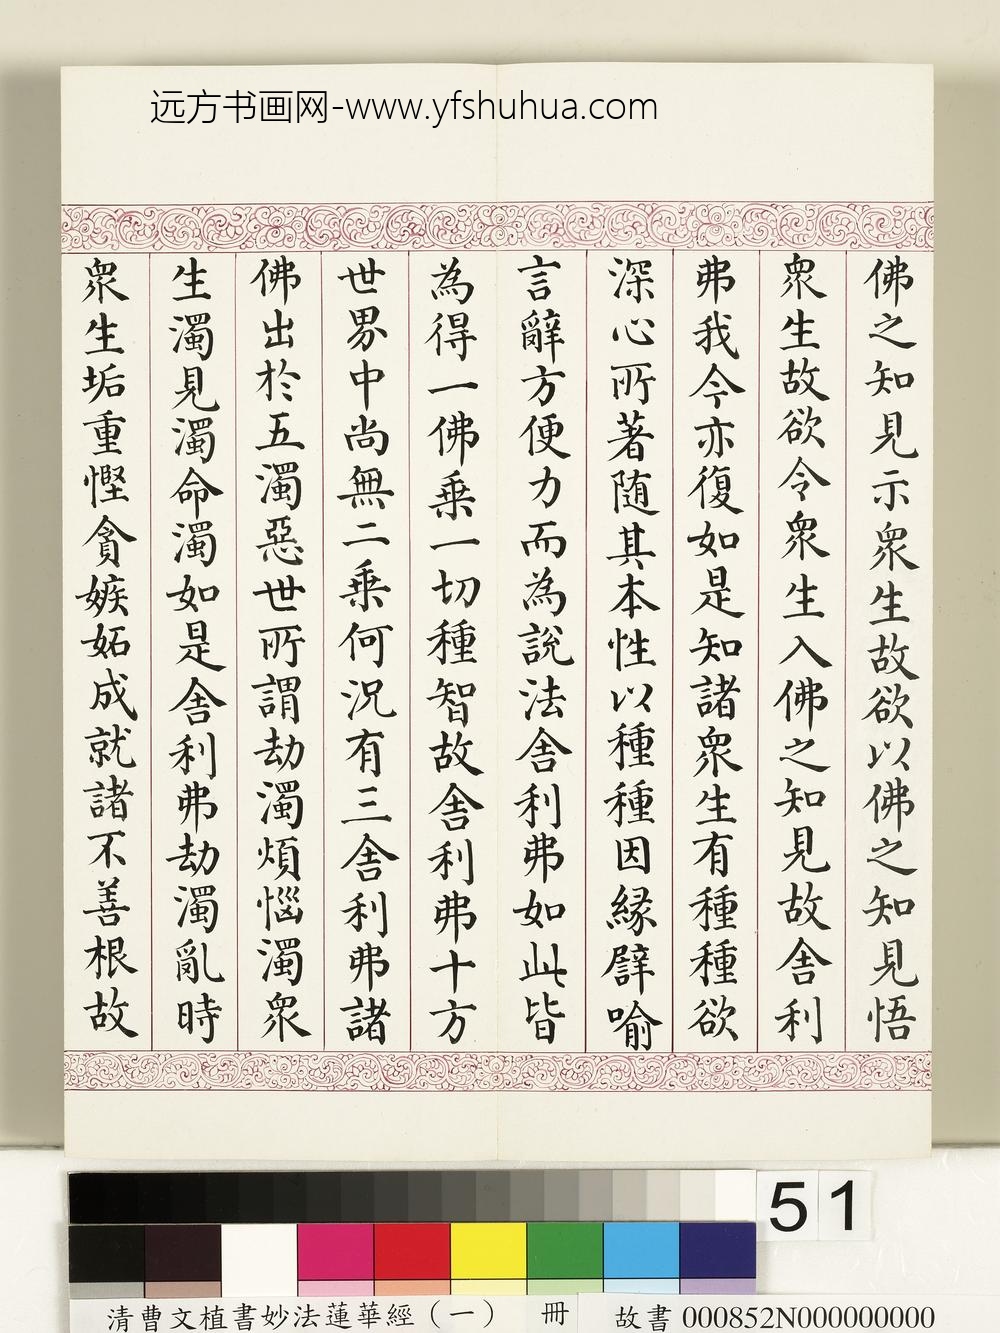 远方书画网-www.yfshuhua.com
佛之知見示衆生故欲以佛之知見悟
衆生故欲令衆生入佛之知見故舍利
弗我今亦復如是知諸衆生有種種欲
深心所著随其本性以種種因緣譬喻
言辭方便力而為説法舍利弗如此皆
為得一佛乗一切種智故舍利弗十方
世界中尚無二乗何况有三舍利弗諸
佛出於五濁惡世所謂劫濁煩惱濁衆
生濁見濁命濁如是舍利弗劫濁亂時
衆生垢重慳貪嫉妬成就諸不善根故
51
清曹文植書妙法蓮華經（一） 冊 故書 000852N000000000